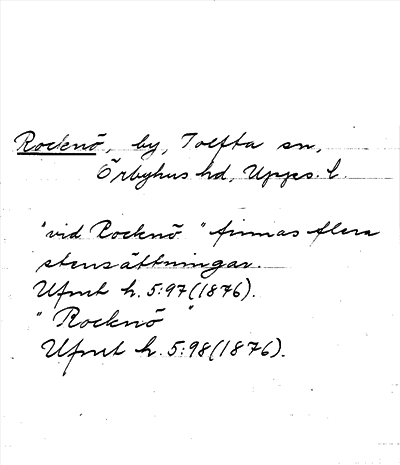 Rocknö, by, Tolfta sn,
Örbyhus hd, Upps. l.
"vid Rocknö" finnas flera
stensättningar.
Ufmt h. 5:97 (1876).
"Rocknö"
Ufmt h. 5:98 (1876).